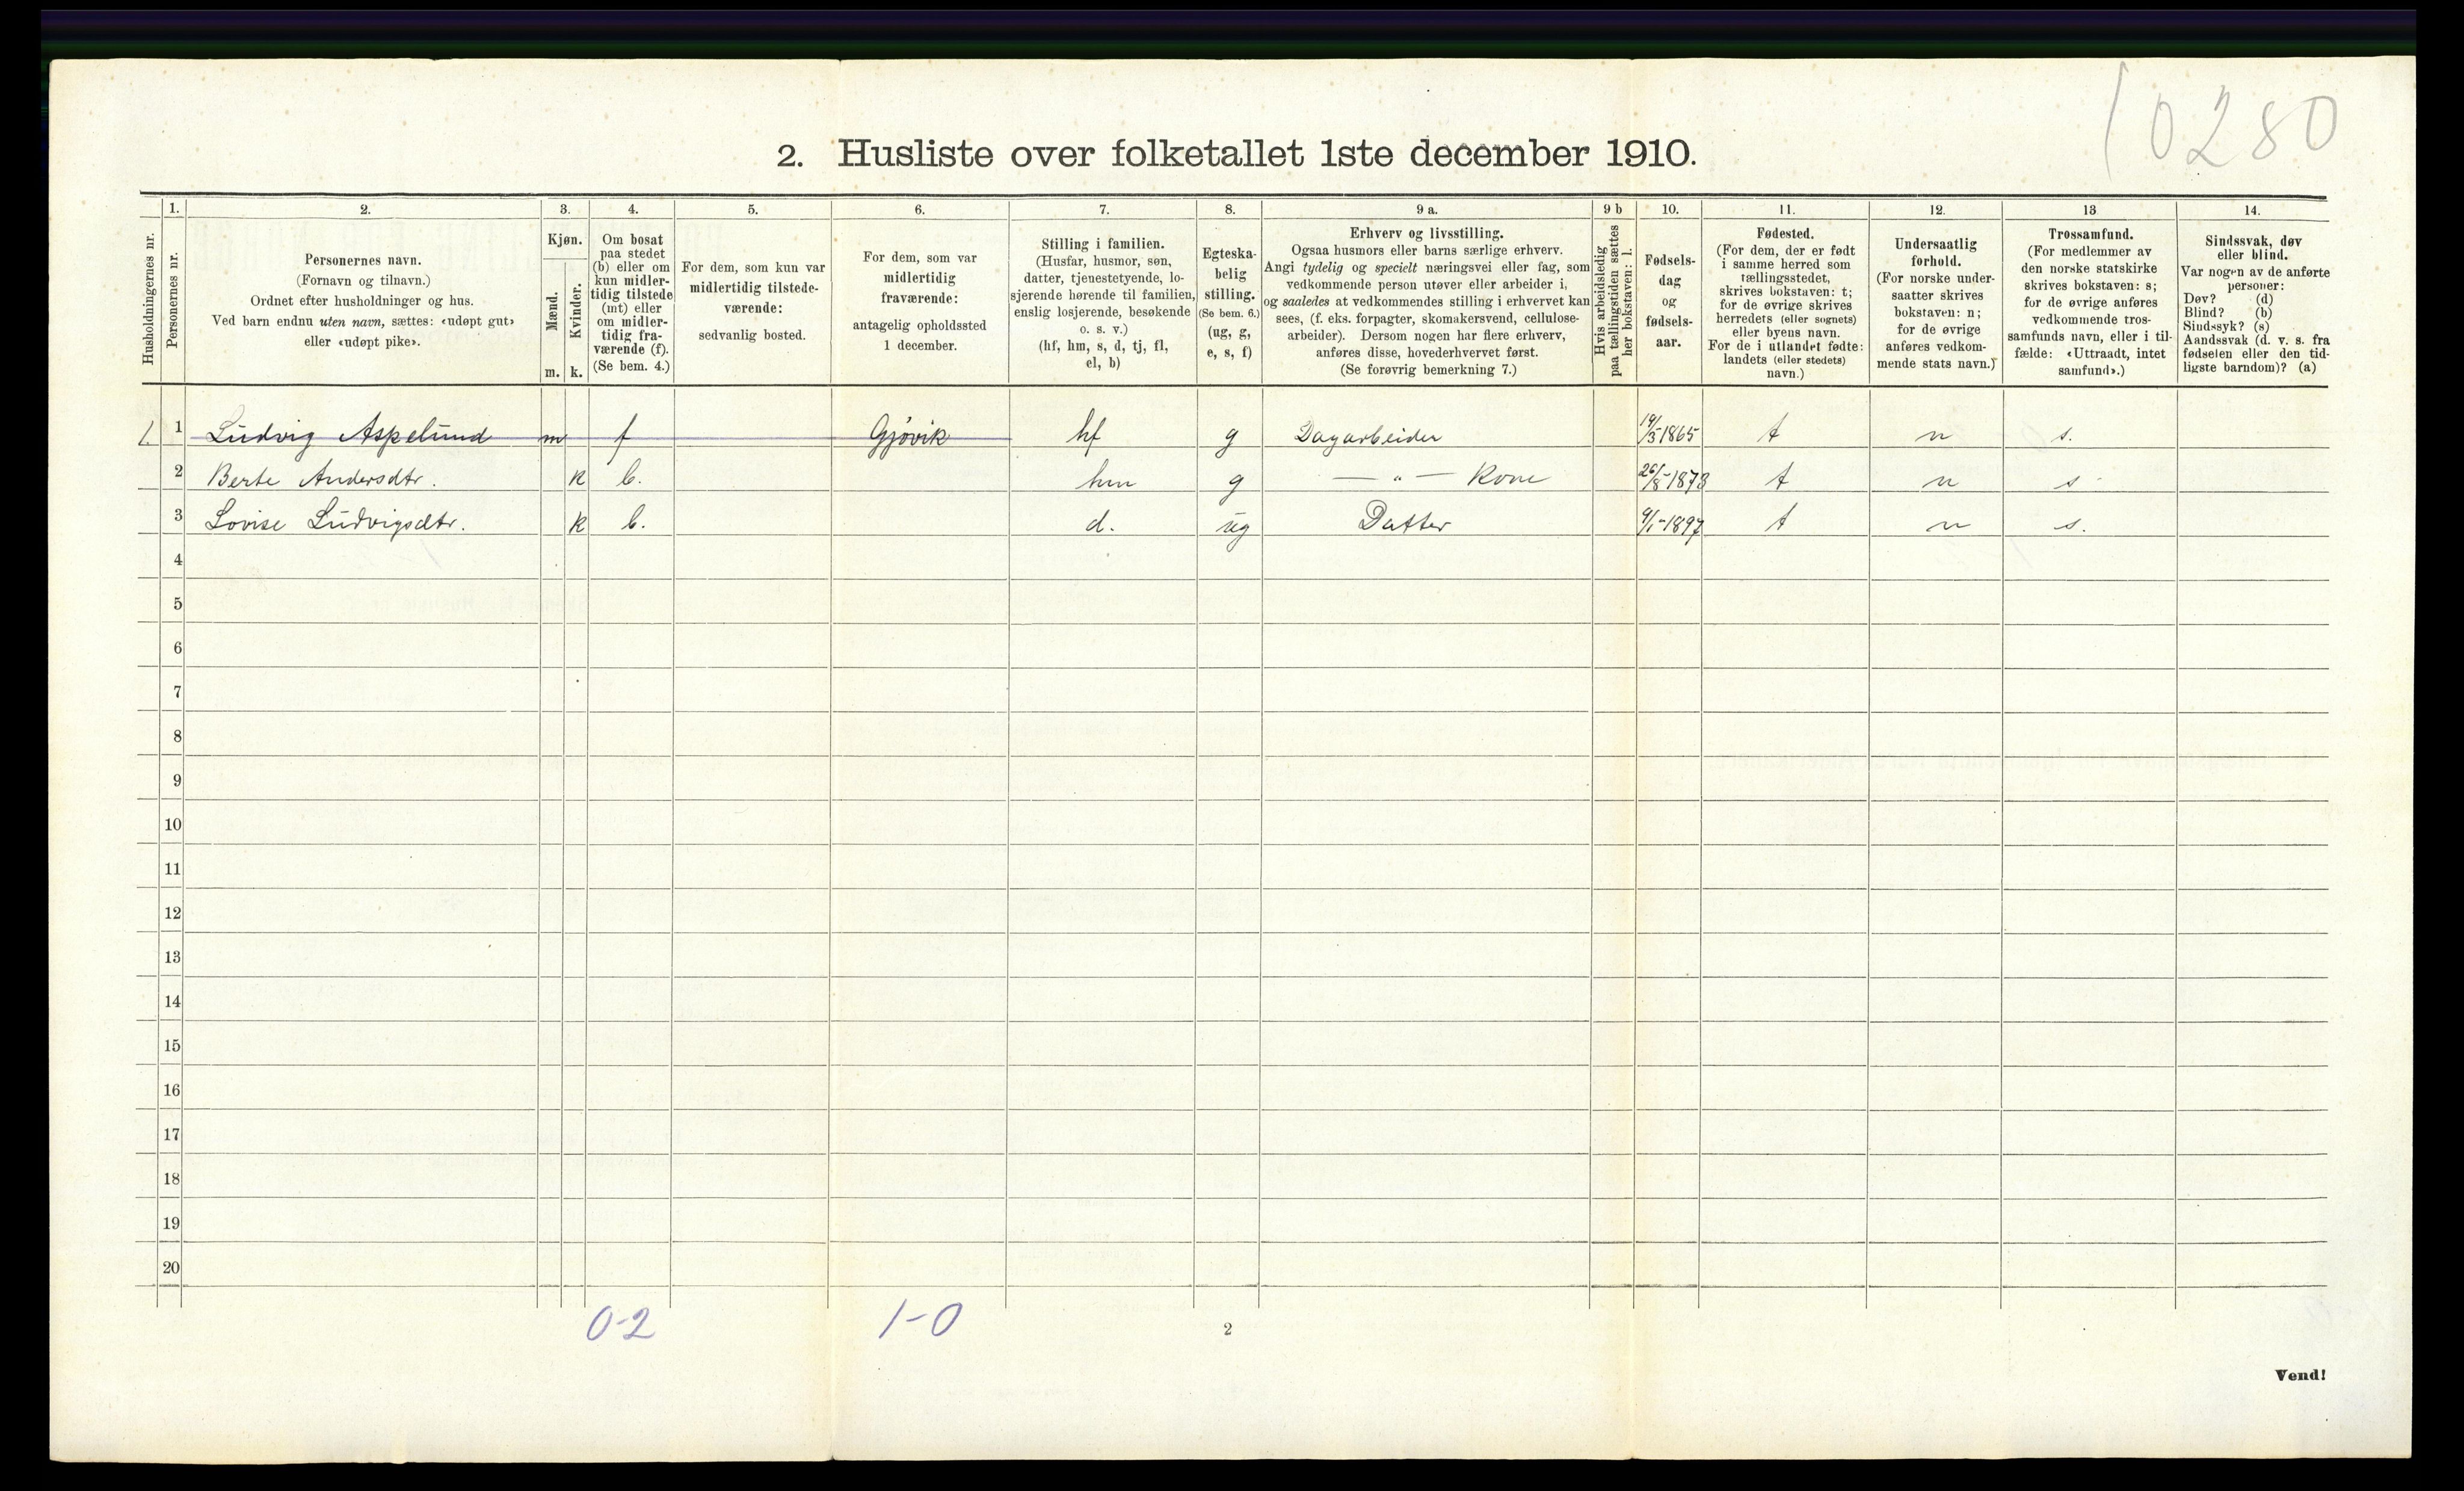 10280
2. Husliste over folketallet 1ste december 1910.
1. 2. 3. 4. 5. 6. 7. 8. 9 a. 9 b 10. 11. 12. 13 14.
Husholdningernes nr.
Personernes nr.
Personernes navn.
(Fornavn og tilnavn.)
Ordnet efter husholdninger og hus.
Ved barn endnu uten navn, sættes: «udøpt gut»
eller «udøpt pike».
Kjøn.
Mænd.
Kvinder.
m. k.
Om bosat
paa stedet
(b) eller om
kun midler-
tidig tilstede
(mt) eller
om midler-
tidig fra-
værende (f).
(Se bem. 4.)
For dem, som kun var
midlertidig tilstede-
værende:
sedvanlig bosted.
For dem, som var
midlertidig
fraværende:
antagelig opholdssted
1 december.
Stilling i familien.
(Husfar, husmor, søn,
datter, tjenestetyende, lo-
sjerende hørende til familien,
enslig losjerende, besøkende
o. s. v.)
(hf, hm, s, d, tj, fl,
el, b)
Egteska-
belig
stilling.
(Se bem. 6.)
(ug, g,
e, s, f)
Erhverv og livsstilling.
Ogsaa husmors eller barns særlige erhverv.
Angi tydelig og specielt næringsvei eller fag, som
vedkommende person utøver eller arbeider i,
og saaledes at vedkommendes stilling i erhvervet kan
sees, (f. eks. forpagter, skomakersvend, cellulose-
arbeider). Dersom nogen har flere erhverv,
anføres disse, hovederhvervet først.
(Se forøvrig bemerkning 7.)
Hvis arbeidsledig
paa tællingstiden sættes
her bokstaven: l.
Fødsels-
dag
og
fødsels-
aar.
Fødested.
(For dem, der er født
i samme herred som
tællingsstedet,
skrives bokstaven: t;
for de øvrige skrives
herredets (eller sognets)
eller byens navn.
For de i utlandet fødte:
landets (eller stedets)
navn.)
Undersaatlig
forhold.
(For norske under-
saatter skrives
bokstaven: n;
for de øvrige
anføres vedkom-
mende stats navn.)
Trossamfund.
(For medlemmer av
den norske statskirke
skrives bokstaven: s;
for de øvrige anføres
vedkommende tros-
samfunds navn, eller i til-
fælde: «Uttraadt, intet
samfund».)
Sindssvak, døv
eller blind.
Var nogen av de anførte
personer:
Døv? (d)
Blind? (b)
Sindssyk? (s)
Aandssvak (d. v. s. fra
fødselen eller den tid-
ligste barndom)? (a)
1. 1 Ludvig Aspelund m f Gjøvik hf g Dagarbeider 19/5 1865 t n s.
2 Berte Andersdtr. k b. hm g — " — Kone 26/8-1873 t n s
3 Lovise Ludvigsdtr. k b. d. ug Datter 9/1-1897 t n s.
4
5
6
7
8
9
10
11
12
13
14
15
16
17
18
19
20
0-2 1-0
2
Vend!